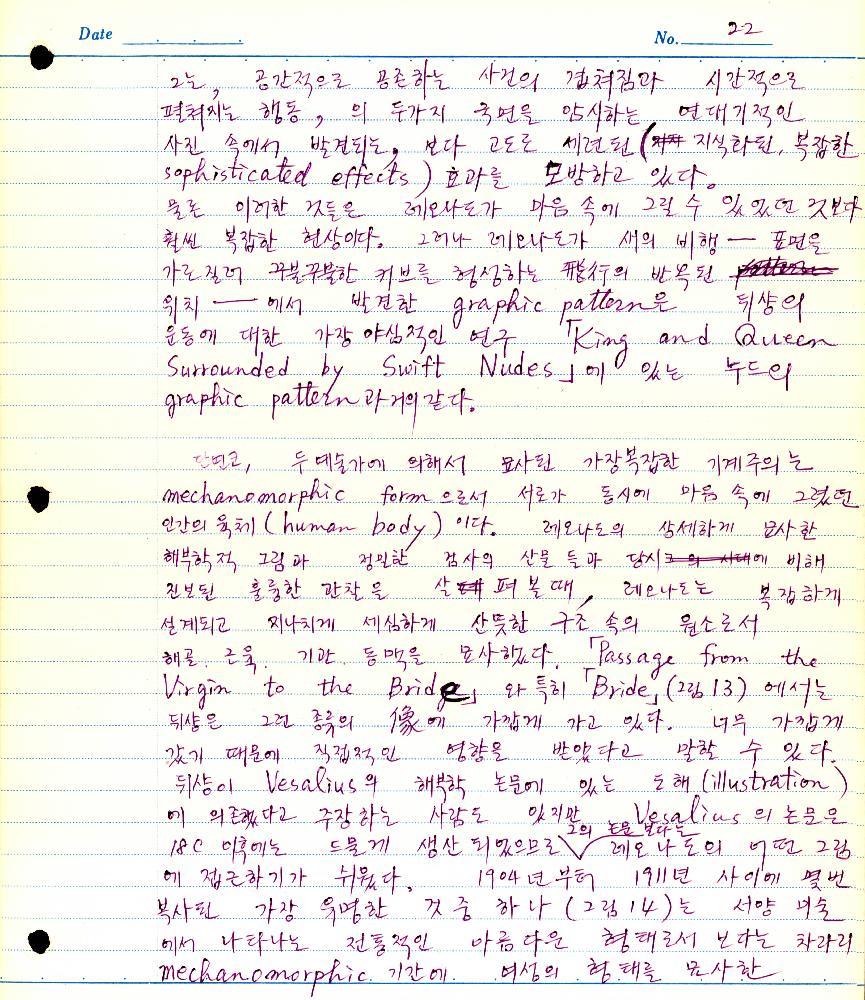 Date
No. 22
그는, 공간적으로 공존하는 사건의 겹쳐짐과 시간적으로
펼쳐지는 행동, 의 두가지 국면을 암시하는 연대기적인
사진 속에서 발견되는, 보다 고도로 세련된 (지식화된, 복잡한
sophisticated effects) 효과를 모방하고 있다.
물론 이러한 것들은 레오나도가 마음 속에 그릴 수 있었던 것보다
훨씬 복잡한 현상이다. 그러나 레오나도가 새의 비행 — 표면을
가로질러 꾸불꾸불한 커브를 형성하는 飛行의 반복된 pattern
위치 — 에서 발견한 graphic pattern은 뒤샹의
운동에 대한 가장 야심적인 연구 「King and Queen
Surrounded by Swift Nudes」에 있는 누드의
graphic pattern과 거의 같다.
단연코, 두 예술가에 의해서 묘사된 가장복잡한 기계주의는
mechanomorphic form으로서 서로가 동시에 마음 속에 그렸던
인간의 육체 (human body) 이다. 레오나도의 상세하게 묘사한
해부학적 그림과 정밀한 검사의 산물 들과 당시그의 시대에 비해
진보된 훌륭한 관찰을 살펴 볼 때, 레오나도는 복잡하게
설계되고 지나치게 세심하게 산뜻한 구조 속의 원소로서
해골. 근육. 기관. 동맥을 묘사했다. 「Passage from the
Virgin to the Bride」 와 특히 「Bride」(그림 13) 에서는
뒤샹은 그런 종류의 像에 가깝게 가고 있다. 너무 가깝게
갔기 때문에 직접적인 영향을 받았다고 말할 수 있다.
뒤샹이 Vesalius의 해부학 논문에 있는 도해 (illustration)
에 의존했다고 주장하는 사람도 있지만 Vesalius의 논문은
그의 논문 보다는
18C 이후에는 드물게 생산 되었으므로 레오나도의 어떤 그림
에 접근하기가 쉬웠다. 1904년부터 1911년 사이에 몇번
복사된 가장 유명한 것 중 하나 (그림 14)는 서양 미술
에서 나타나는 전통적인 아름다운 형태로서 보다는 차라리
mechanomorphic 기간에 여성의 형태를 묘사한